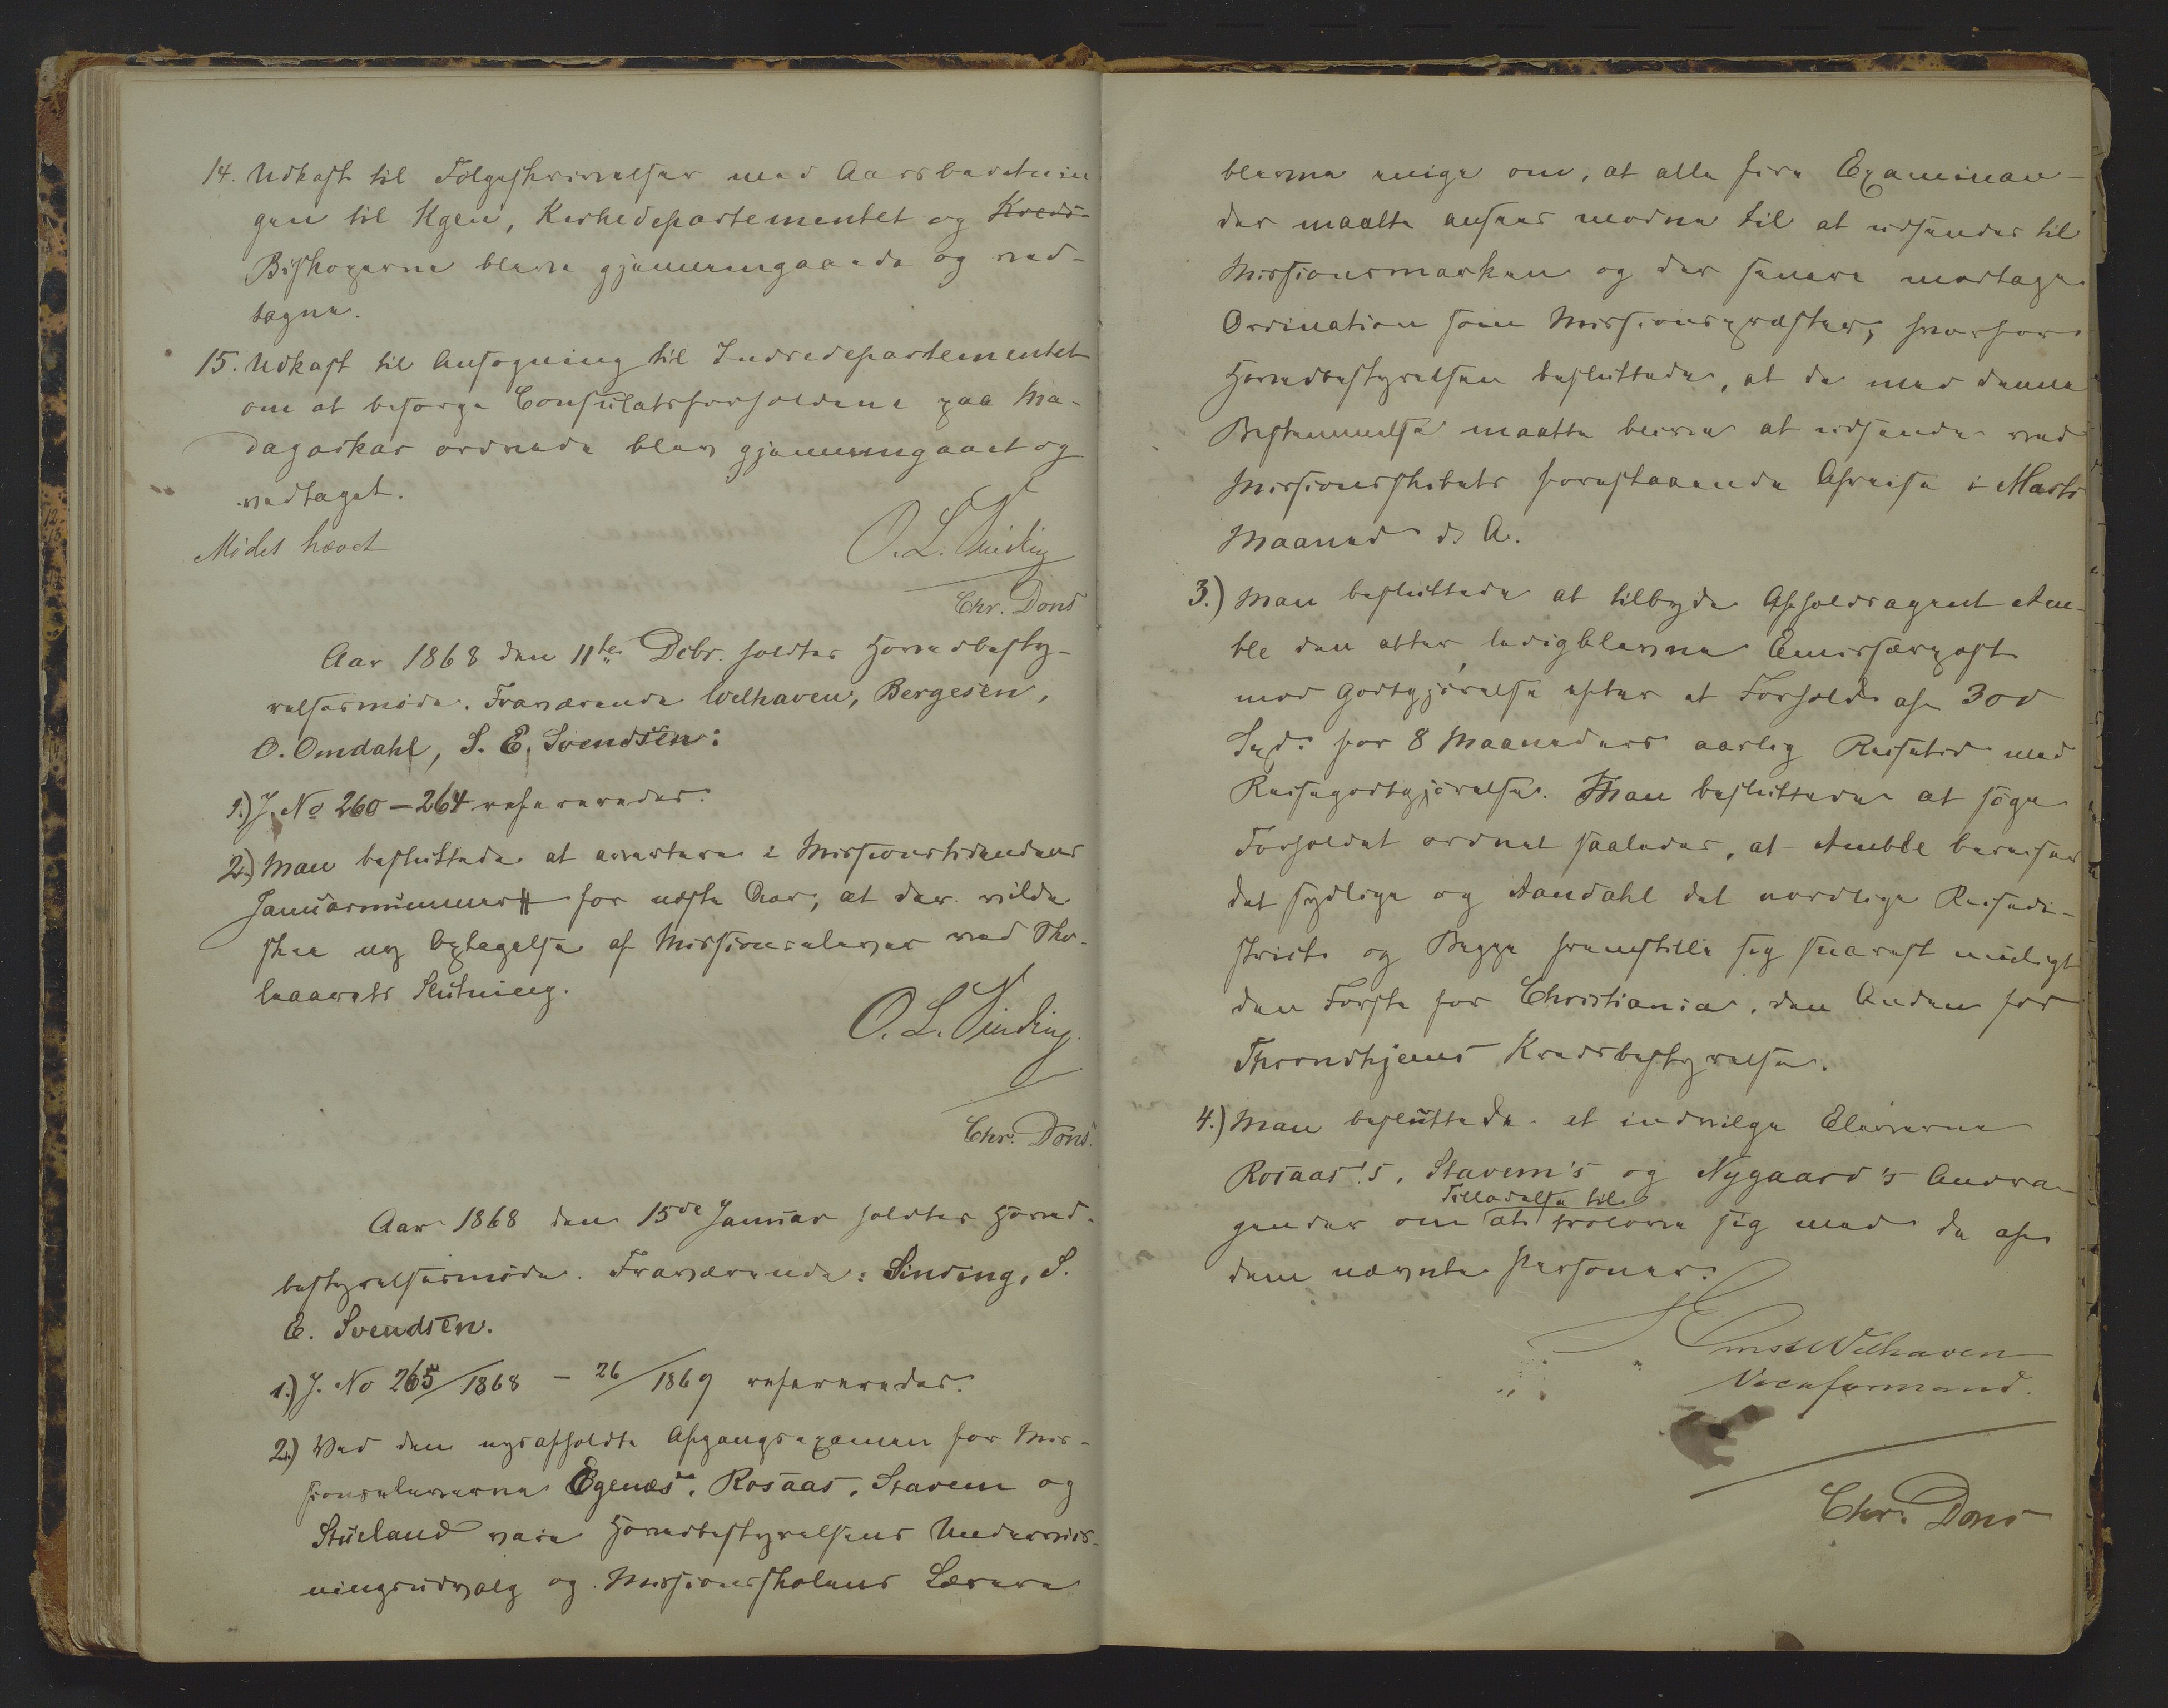 14. Udkast til Følgeskrivelser med Aarsberetnin
gen til Kgen, Kirkedepartementet og Kreds-
Biskoperne bleve gjennemgaaede og ved-
tagne.
15. Udkast til Ansøgning til Indredepartementet
om at besørge Consulatsforholdene paa Ma-
dagaskar ordnede blev gjennemgaaet og
vedtaget.
Mødet hævet
O. L. Sinding
Chr. Dons
Aar 1868 den 11te Debr. holdtes Hovedbesty-
relsesmøde. Fraværende Welhaven, Bergesen,
O. Omdahl, S. E. Svendsen:
1.) J. No 260-264 refereredes.
2.) Man besluttede at avertere i Missionstidendens
Januarnummer for næste Aar, at der vilde
skee ny Optagelse af Missionselever ved Sko-
leaarets Slutning.
O. L. Sinding.
Chr. Dons.
Aar 1868 den 15de Januar holdtes Hoved-
bestyrelsesmøde. Fraværende: Sinding, S.
E. Svendsen.
1.) J. No 265/1868 - 26/1869 refereredes.
2.) Ved den nysafholdte Afgangsexamen for Mis-
sionseleverne Egenæs, Rosaas, Stavem og
Stueland vare Hovedbestyrelsens Undervis-
ningsudvalg og Missionsskolens Lærere
blevne enige om, at alle fire Examinan-
der maatte ansees modne til at udsendes til
Missionsmarken og der senere modtage
Ordination som Missionspræster; hvorfor
Hovedbestyrelsen besluttede, at de med denne
Bestemmelse maatte blive at udsende med
Missionsskibets forestaaende Afreise i Marts
Maaned d. A.
3.) Man besluttede at tilbyde Afholdsagent Am-
ble den atter ledigblevne Emissærpost
mod Godtgjørelse efter et Forhold af 300
Spd. for 8 Maaneders aarlig Reisetid med
Reisegodtgjørelse. Man besluttede at søge
Forholdet ordnet saaledes, at Amble bereiser
det sydlige og Aandahl det nordlige Reisedi-
strict og Begge fremstille sig snarest muligt
den Første for Christiania, den Anden for
Throndhjems Kredsbestyrelse.
4.) Man besluttede at indvilge Eleverne
Rosaas's, Stavem's og Nygaard's Andra-
Tilladelse til
gender om at trolove sig med de af
dem nævnte Personer.
Ernst Welhaven
Viceformand.
Chr. Dons